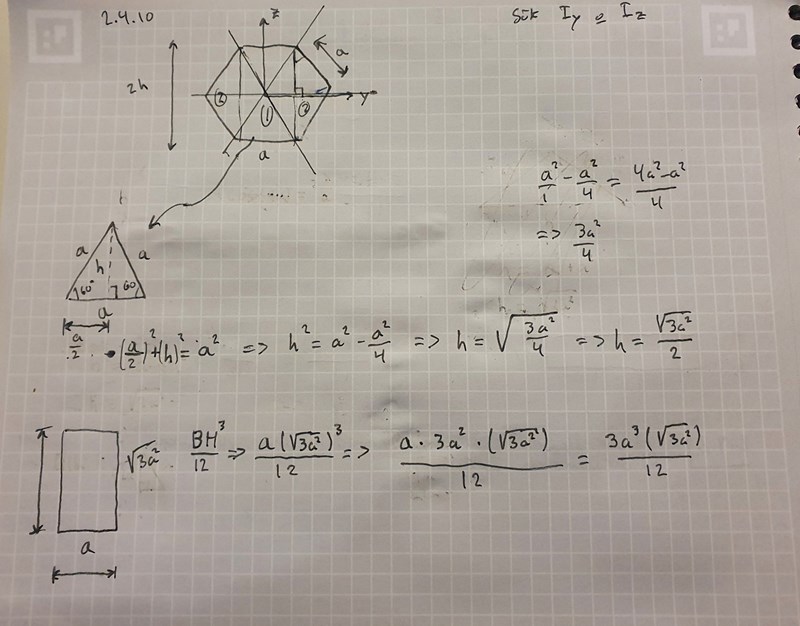 2.4.10
Sök Iy o Iz
z
a
2h
② ① ② y
a
a²/1 - a²/4 = 4a²-a²/4
=> 3a²/4
a h a
60° 60
a
a/2 (a/2)² + (h)² = a² => h² = a² - a²/4 => h = √(3a²/4) => h = √3a²/2
√3a² BH³/12 => a(√3a²)³/12 => a · 3a² · (√3a²)/12 = 3a³(√3a²)/12
a